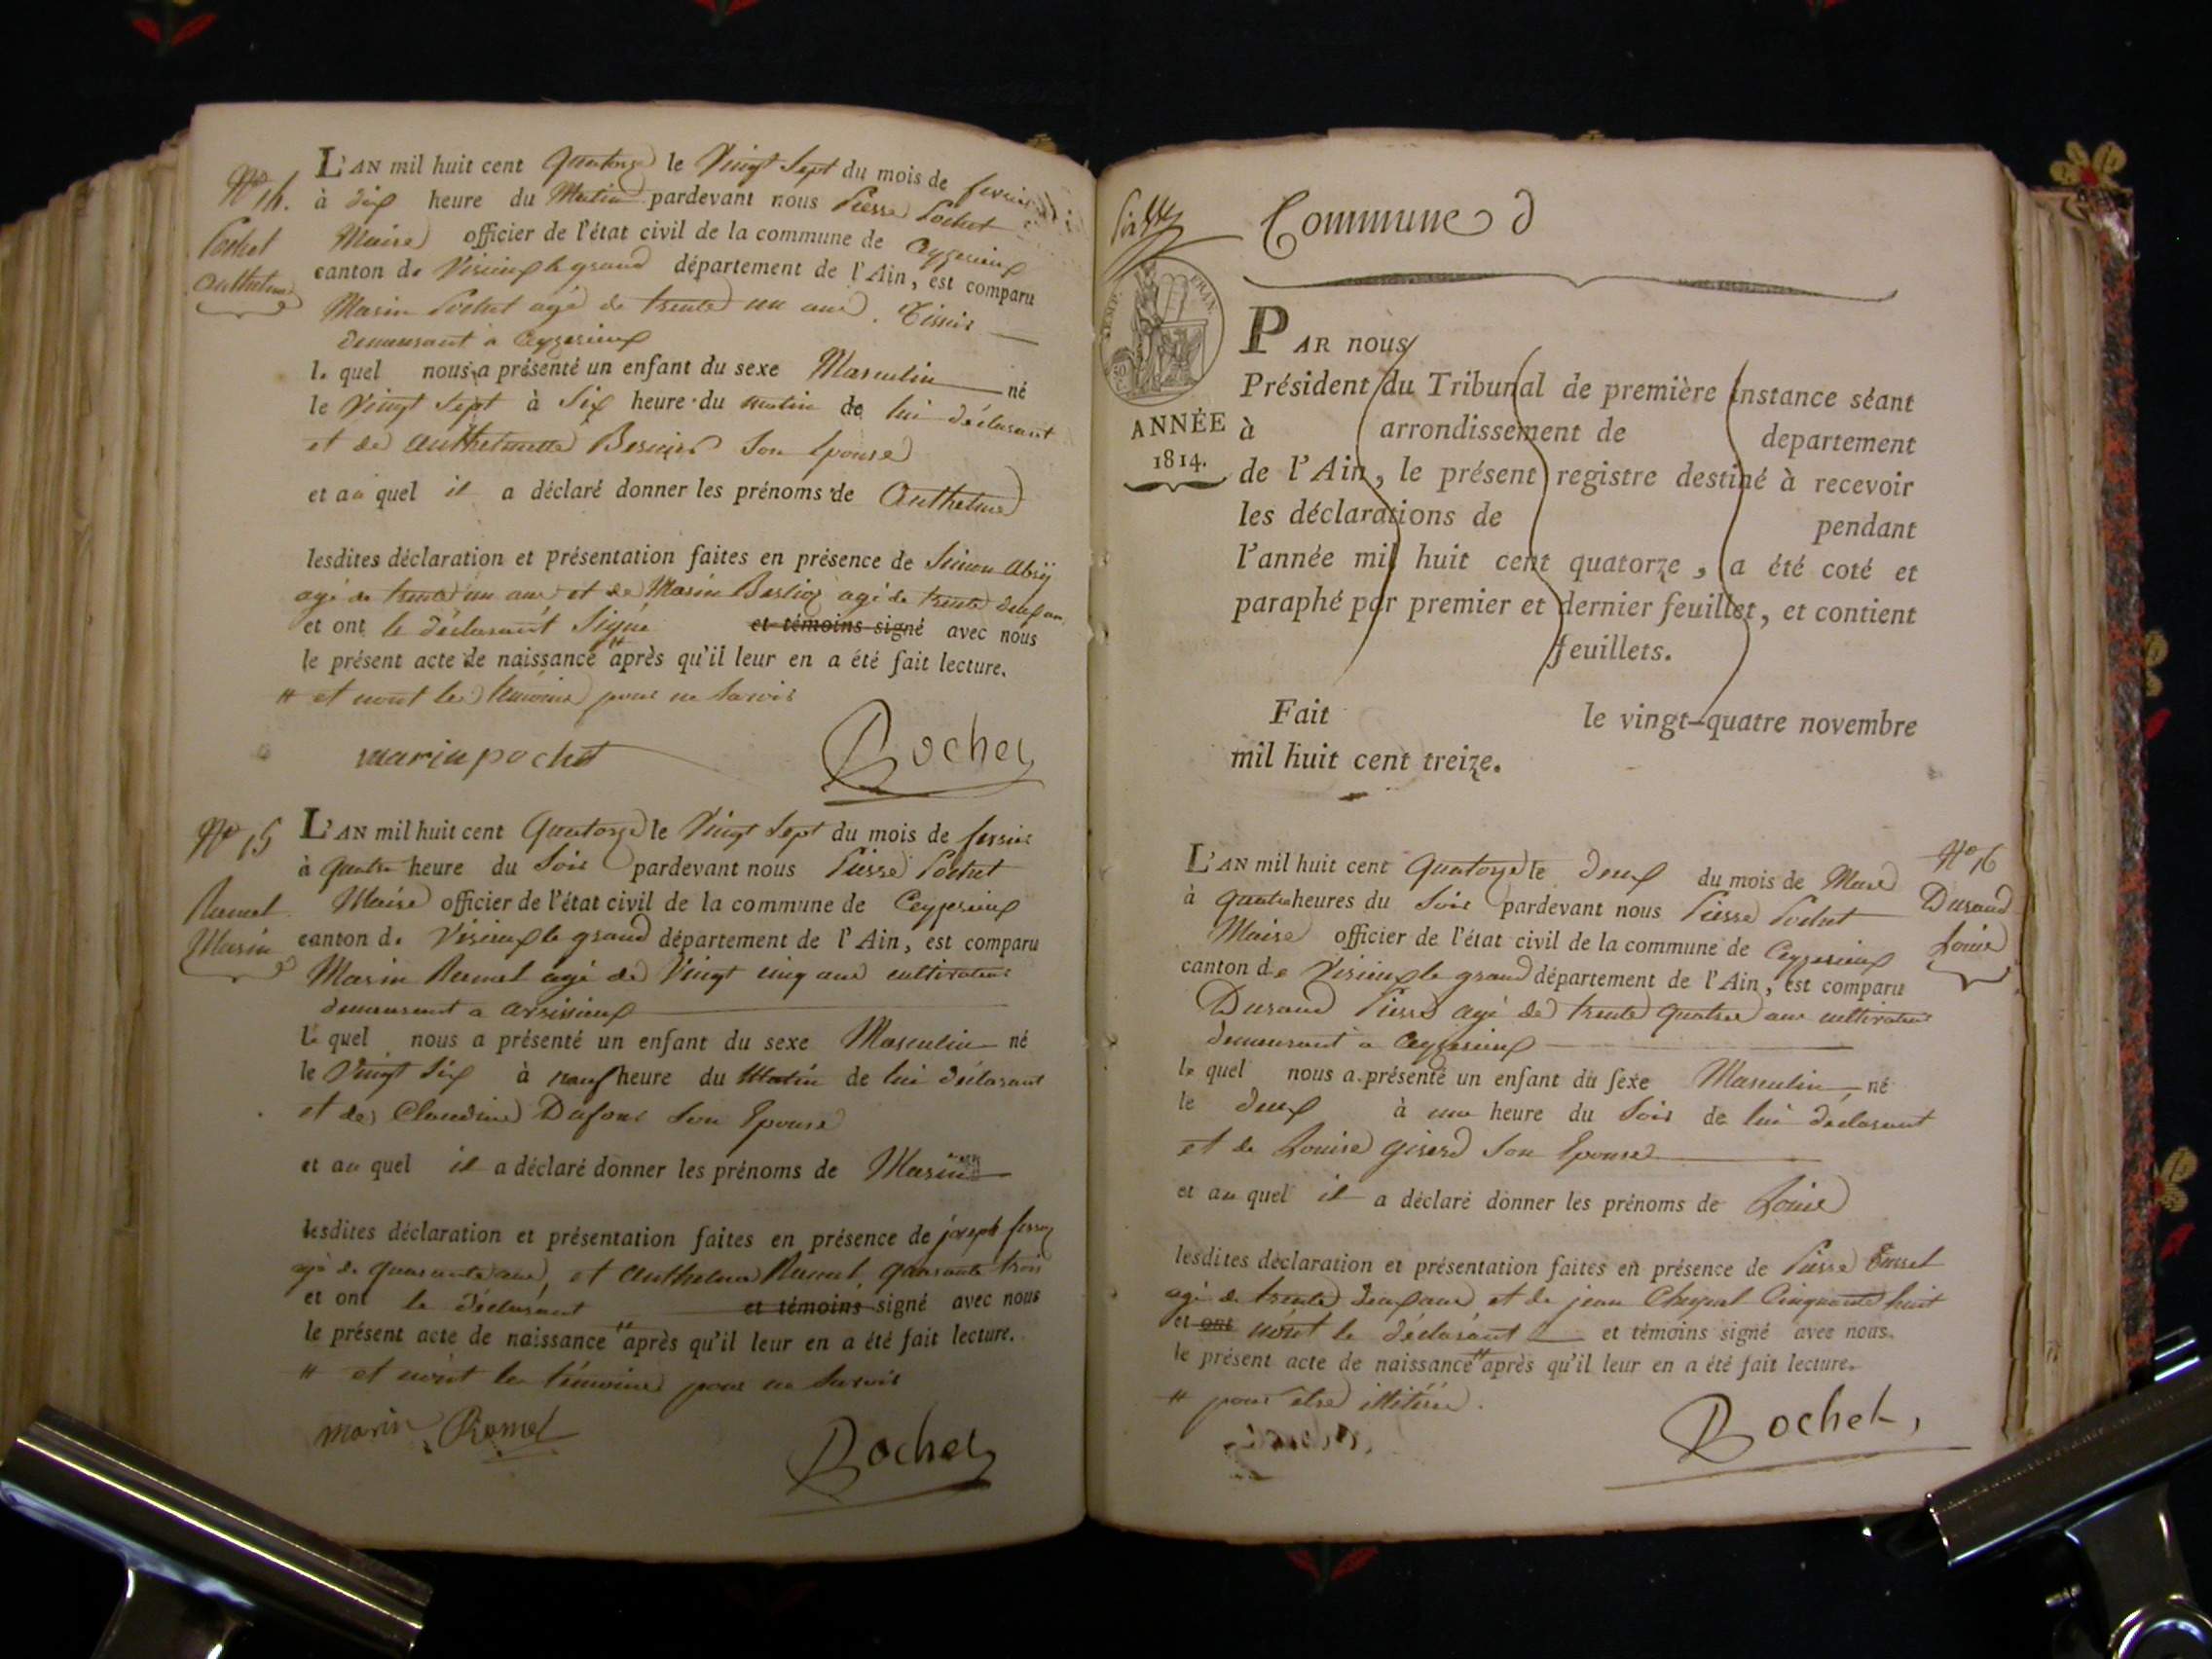 N° 14.
Pochet
Anthelme
L'AN mil huit cent Quatorze le Vingt Sept du mois de fevrier
à dix heure du Matin pardevant nous Pierre Pochet
Maire officier de l'état civil de la commune de Ceyzerieux
canton de Virieux le grand département de l'Ain, est comparu
Marin Pochet agé de trente un ans. Tissier
demeurant à Ceyzerieux
le quel nous a présenté un enfant du sexe Masculin né
le Vingt Sept à Six heure du matin de lui déclarant
et de Anthelmette Bernier Son Epouse
et au quel il a déclaré donner les prénoms de Anthelme
lesdites déclaration et présentation faites en présence de Simon Abry
agé de trente un ans et de Marin Berlioz agé de trente deux ans
et ont le déclarant Signé et témoins signé avec nous
le présent acte de naissance # après qu'il leur en a été fait lecture.
# et nont les témoins pour ne Savoir
marin pochet Pochet
N° 15
Ramel
Marin
L'AN mil huit cent Quatorze le Vingt Sept du mois de fevrier
à quatre heure du Soir pardevant nous Pierre Pochet
Maire officier de l'état civil de la commune de Ceyzerieux
canton de Virieux le grand département de l'Ain, est comparu
Marin Ramel agé de Vingt cinq ans cultivateur
demeurant a avrissieux
Le quel nous a présenté un enfant du sexe Masculin né
le Vingt Six à neuf heure du Matin de lui déclarant
et de Claudine Dufour Son Epouse
et au quel il a déclaré donner les prénoms de Marin
lesdites déclaration et présentation faites en présence de joseph ferroz
agé de quarante ans, et Anthelme Ramel quarante trois
et ont le déclarant et témoins signé avec nous
le présent acte de naissance # après qu'il leur en a été fait lecture.
# et nont les témoins pour ne Savoir
marin Ramel Pochet
Commune d
TIMP. FRAN.
ANNÉE
1814.
PAR nous
Président du Tribunal de première instance séant
à arrondissement de departement
de l'Ain, le présent registre destiné à recevoir
les déclarations de pendant
l'année mil huit cent quatorze, a été coté et
paraphé par premier et dernier feuillet, et contient
feuillets.
Fait le vingt-quatre novembre
mil huit cent treize.
N° 16
Durand
Louise
L'AN mil huit cent Quatorze le deux du mois de Mars
à quatre heures du Soir pardevant nous Pierre Pochet
Maire officier de l'état civil de la commune de Ceyzerieux
canton de Virieux le grand département de l'Ain, est comparu
Durand Pierre agé de trente quatre ans cultivateur
demeurant à Ceyzerieux
le quel nous a présenté un enfant du sexe Masculin né
le deux à une heure du Soir de lui déclarant
et de Louise girerd Son Epouse
et au quel il a déclaré donner les prénoms de Louise
lesdites déclaration et présentation faites en présence de Pierre
agé de trente deux ans et de jean Cinquante huit
et ont nont le déclarant et témoins signé avec nous.
le présent acte de naissance # après qu'il leur en a été fait lecture.
# pour etre illitéré.
Pochet,